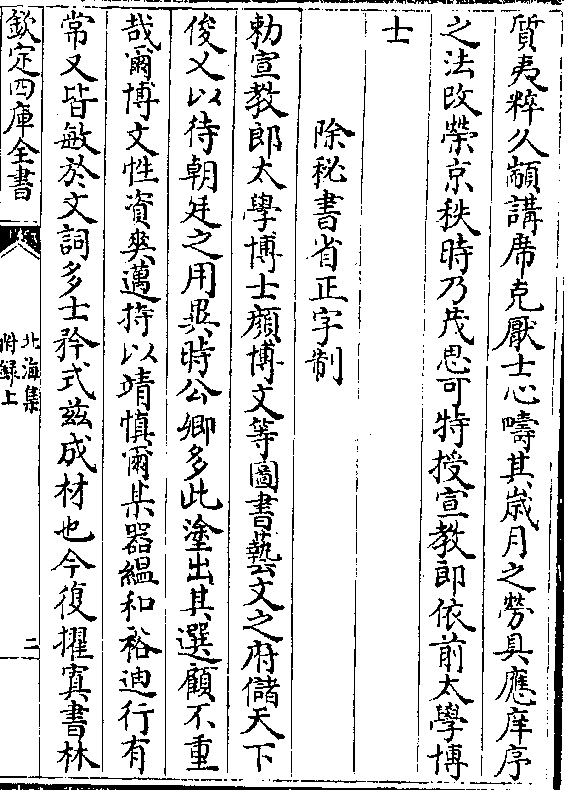 質夷粹久顓講席克厭士心疇其歳月之勞具應庠序
之法改榮京秩時乃茂恩可特授宣教郎依前太學博
士
除秘書省正字制
勅宣教郎太學博士顔博文等圖書藝文之府儲天下
俊乂以待朝廷之用異時公卿多此塗出其選顧不重
哉爾博文性資爽邁持以靖慎爾某器緼和裕迪行有
常又皆敏於文詞多士矜式兹成材也今復擢寘書林
欽定四庫全書
北海集
附録上
二